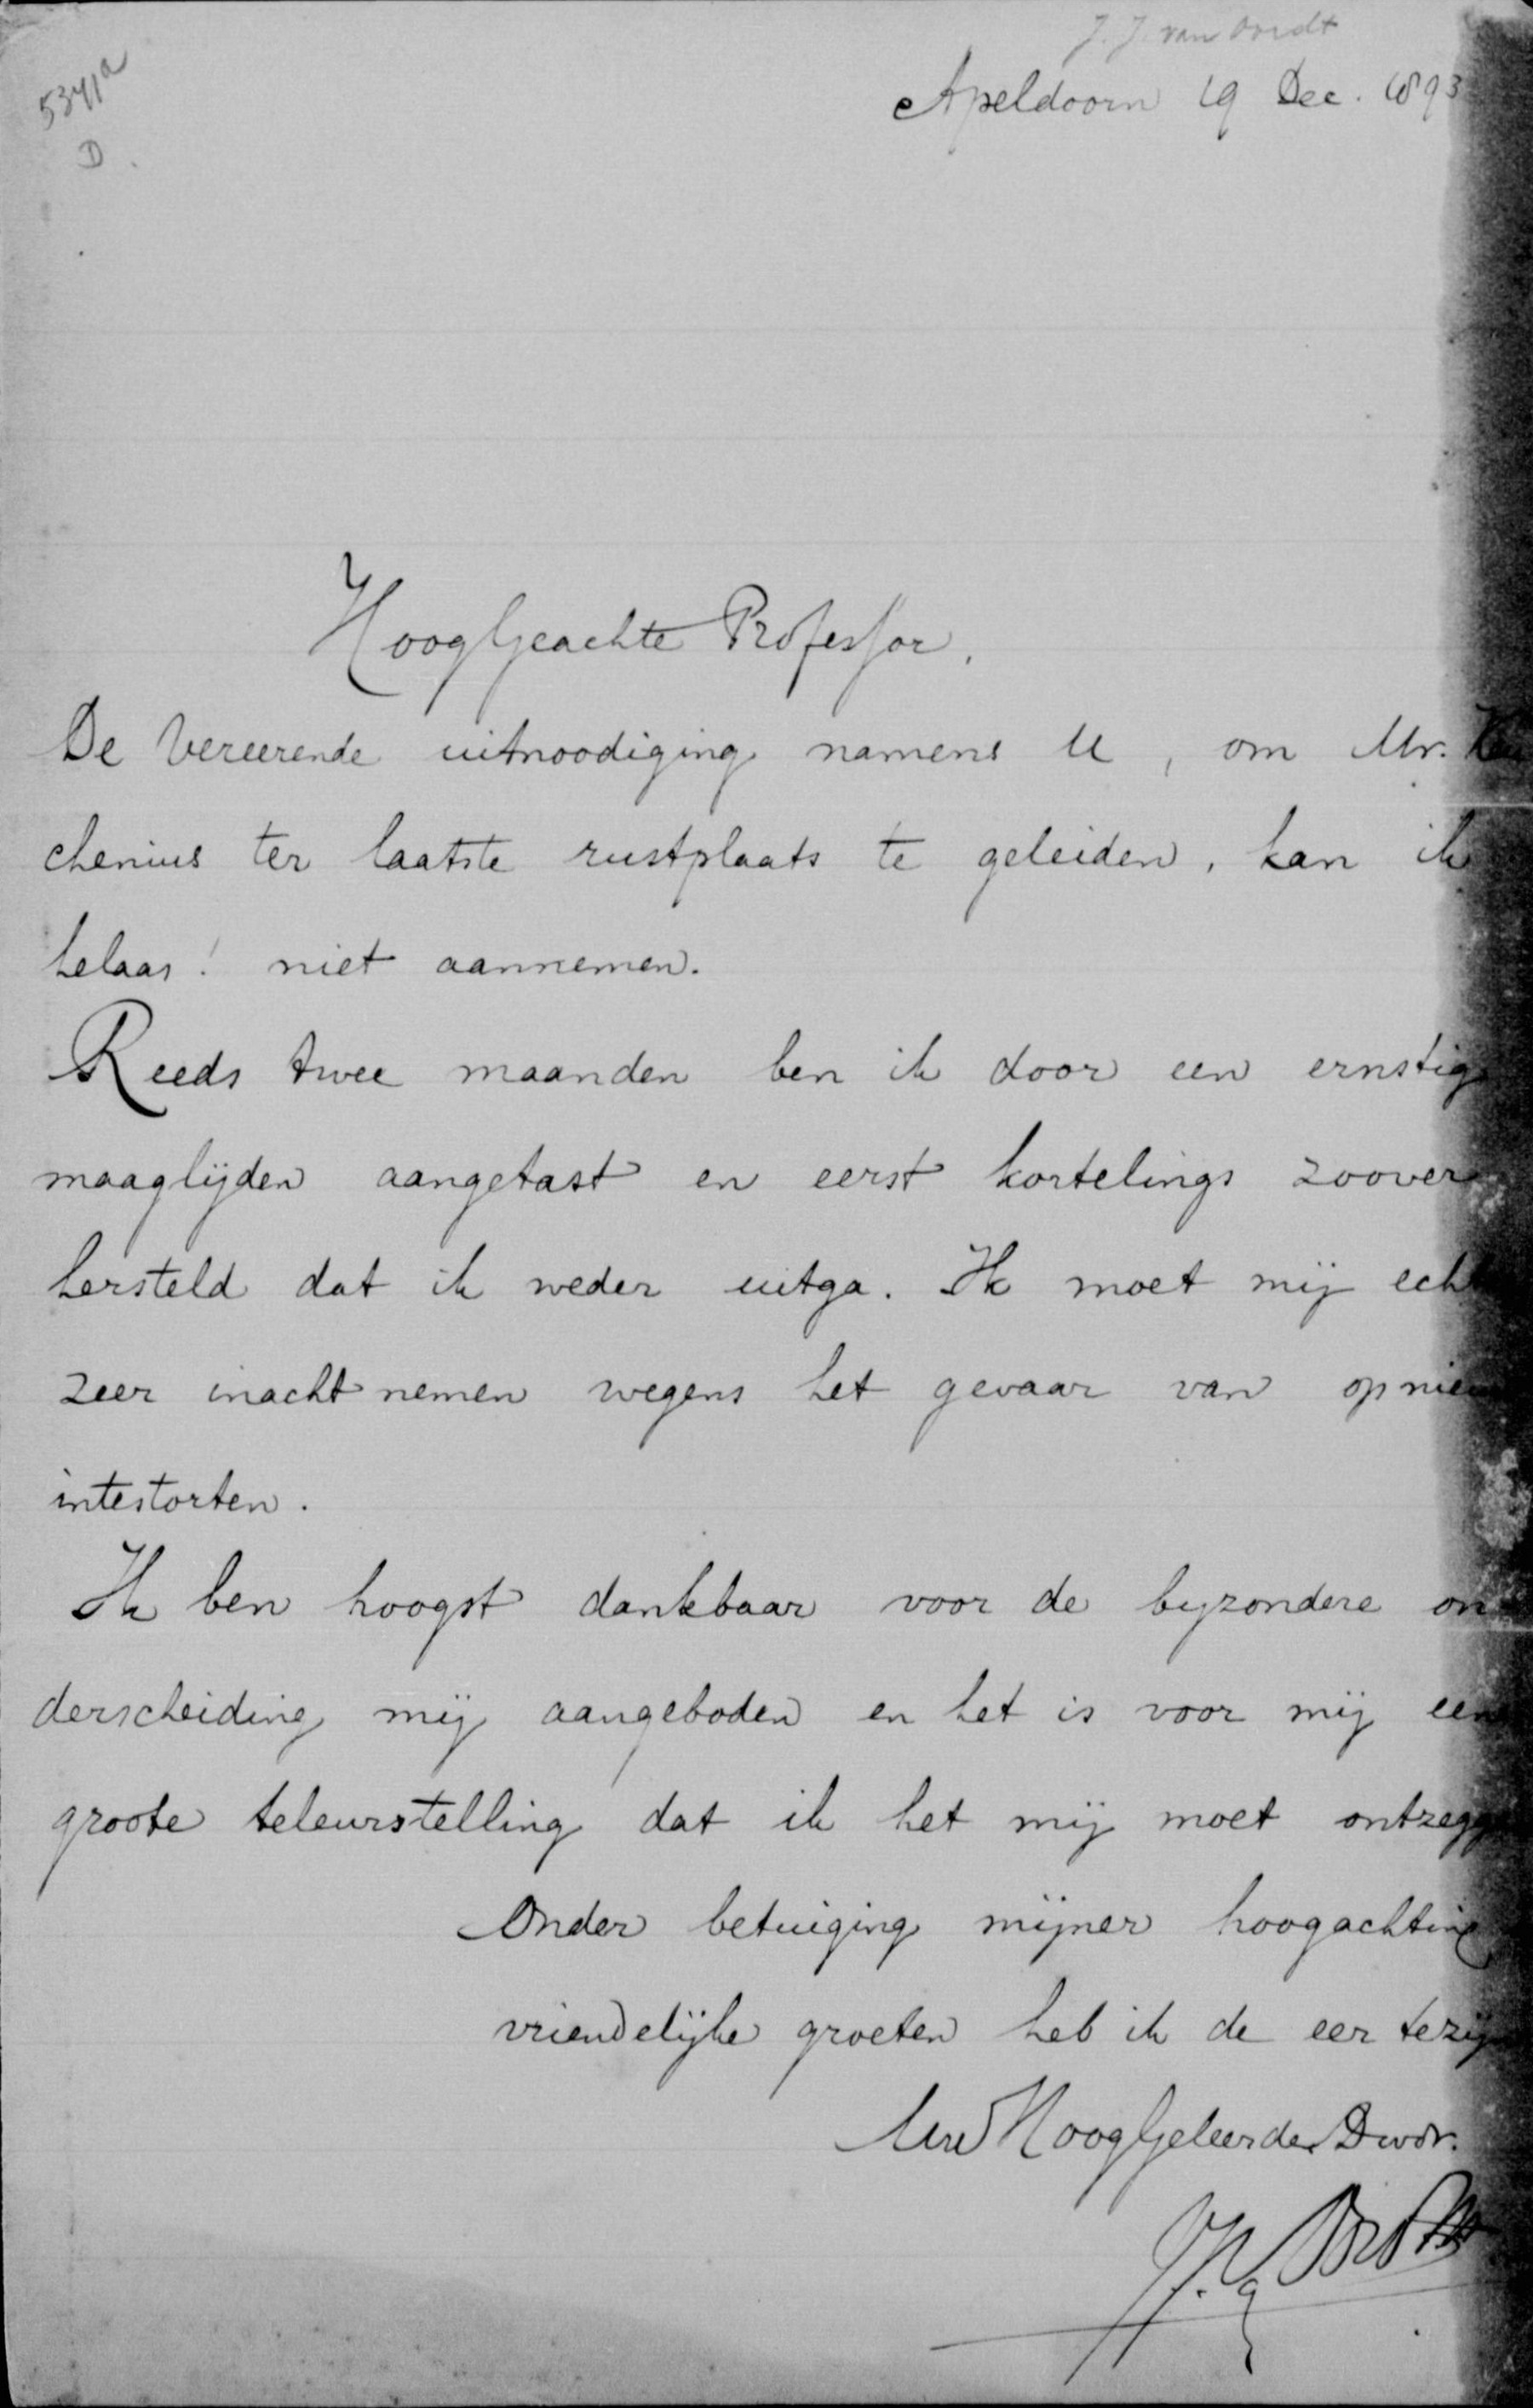 J. J. van Oordt
5341a
D.
Apeldoorn 19 Dec. 1893
HoogGeachte Professor.
De Vereerende uitnoodiging namens U, om Mr. Keu
chenius ter laatste rustplaats te geleiden, kan ik
helaas! niet aannemen.
Reeds twee maanden ben ik door een ernstig
maaglijden aangetast en eerst kortelings zoover
hersteld dat ik weder uitga. Ik moet mij echt
zeer inacht nemen wegens het gevaar van opnieuw
intestorten.
Ik ben hoogst dankbaar voor de byzondere on
derscheiding mij aangeboden en het is voor mij een
groote teleurstelling dat ik het mij moet ontzegg
Onder betuiging mijner hoogachting
vriendelijke groeten heb ik de eer tezijn
Uw HoogGeleerde Dwdr.